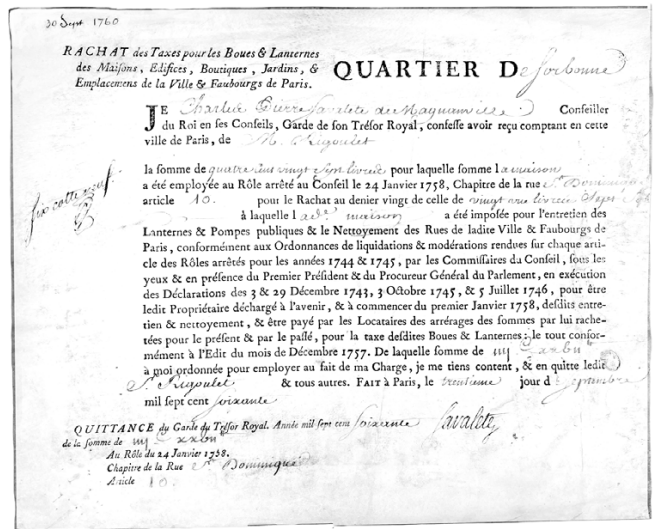 30 Sept 1760
RACHAT des Taxes pour les Boues & Lanternes
des Maisons, Edifices, Boutiques, Jardins, &
Emplacemens de la Ville & Faubourgs de Paris.
QUARTIER De Sorbonne
JE Charles Pierre Savalete de Magnanville Conseiller
du Roi en ses Conseils, Garde de son Trésor Royal, confesse avoir reçu comptant en cette
ville de Paris, de M. Rigoulet
la somme de quatre cent vingt sept livres pour laquelle somme la maison
a été employée au Rôle arrêté au Conseil le 24 Janvier 1758, Chapitre de la rue St Dominique
article 10. pour le Rachat au denier vingt de celle de vingt une livres sept
à laquelle lade maison a été imposée pour l'entretien des
Lanternes & Pompes publiques & le Nettoyement des Rues de ladite Ville & Faubourgs de
Paris, conformément aux Ordonnances de liquidations & modérations rendues sur chaque arti-
cle des Rôles arrêtés pour les années 1744 & 1745, par les Commissaires du Conseil, sous les
yeux & en présence du Premier Président & du Procureur Général du Parlement, en exécution
des Déclarations des 3 & 29 Décembre 1743, 3 Octobre 1745, & 5 Juillet 1746, pour être
ledit Propriétaire déchargé à l'avenir, & à commencer du premier Janvier 1758, desdits entre-
tien & nettoyement, & être payé par les Locataires des arrérages des sommes par lui rache-
tées pour le présent & par le passé, pour la taxe desdites Boues & Lanternes; le tout confor-
mément à l'Edit du mois de Décembre 1757. De laquelle somme de
à moi ordonnée pour employer au fait de ma Charge, je me tiens content, & en quitte ledit
Sr. Rigoulet & tous autres. FAIT à Paris, le trentieme jour de Septembre
mil sept cent soixante
QUITTANCE du Garde du Trésor Royal. Année mil sept cent soixante Savalete
de la somme de
Au Rôle du 24 Janvier 1758.
Chapitre de la Rue St Dominique
Article 10.